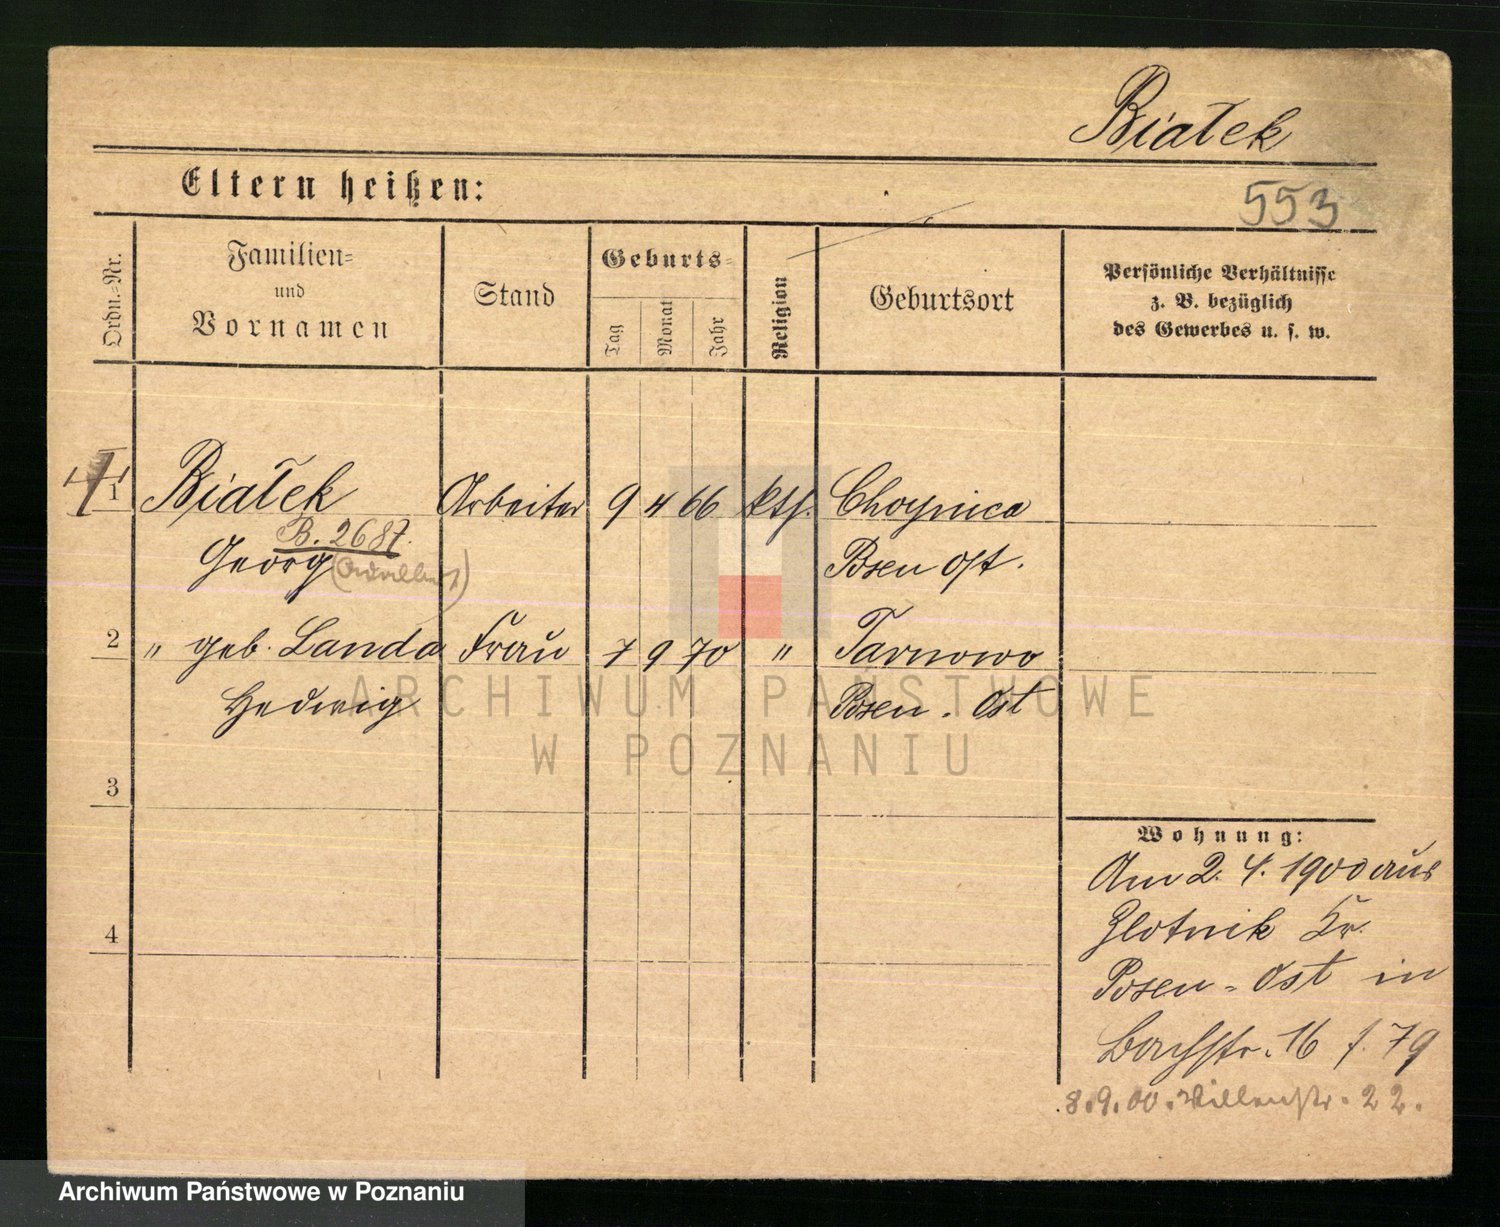 Białek
Eltern heißen:
553
Ordn.-Nr.
Familien-
und
Vornamen
Stand
Geburts-
Tag
Monat
Jahr
Religion
Geburtsort
Persönliche Verhältnisse
z. B. bezüglich
des Gewerbes u. s. w.
1 Białek Arbeiter 9 4 66 kth. Choynica
B. 2687.
Georg Posen Ost.
2 " geb. Landa Frau 7 9 70 " Tarnowo
Hedwig Posen. Ost
3
4
Wohnung:
Am 2. 4. 1900 aus
Zlotnik Kr.
Posen-Ost in
16 f. 79
8.9.00. Villenstr. 22.
ARCHIWUM PAŃSTWOWE
W POZNANIU
Archiwum Państwowe w Poznaniu